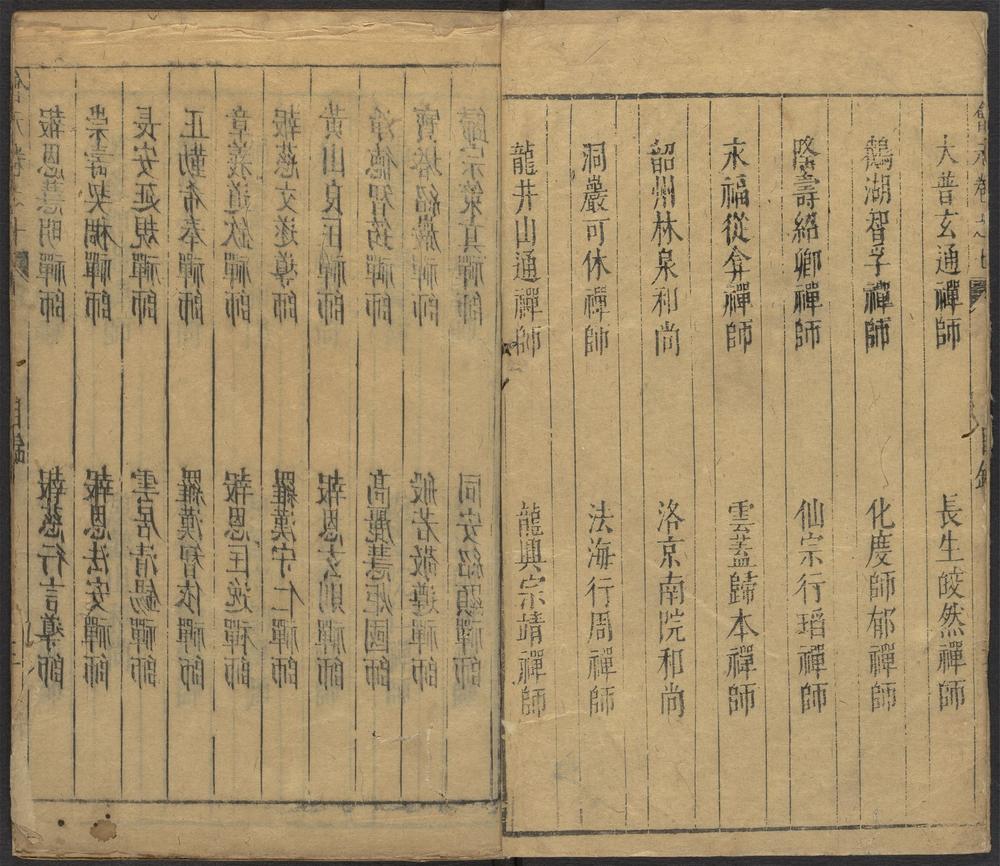 會元卷之七 目錄
大普玄通禪師 長生皎然禪師
鵝湖智孚禪師 化度師郁禪師
隆壽紹卿禪師 仙宗行瑫禪師
永福從弇禪師 雲蓋歸本禪師
韶州林泉和尚 洛京南院和尚
洞巖可休禪師 法海行周禪師
龍井山通禪師 龍興宗靖禪師
會元卷之十 目錄
報恩慧明禪師 報慈行言導師
崇壽契稠禪師 報恩法安禪師
長安延規禪師 雲居清錫禪師
正勤希奉禪師 羅漢智依禪師
章義道欽禪師 報恩匡逸禪師
報慈文遂導師 羅漢守仁禪師
黃山良匡禪師 報恩玄則禪師
淨德智筠禪師 高麗慧炬國師
寶塔紹巖禪師 般若敬遵禪師
歸宗策真禪師 同安紹顯禪師